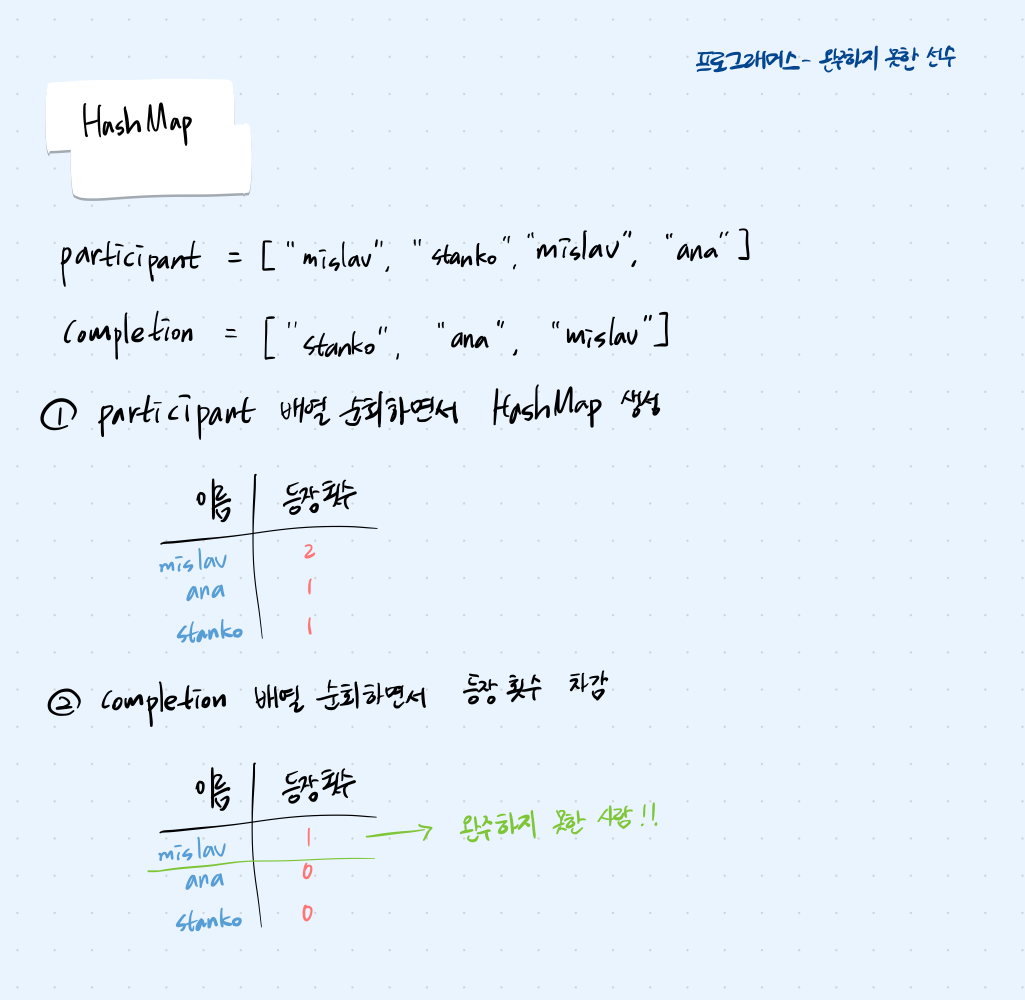 프로그래머스 - 완주하지 못한 선수
HashMap
participant = ["mislav", "stanko", "mislav", "ana"]
completion = ["stanko", "ana", "mislav"]
① participant 배열 순회하면서 HashMap 생성
이름 등장횟수
mislav 2
ana 1
stanko 1
② completion 배열 순회하면서 등장 횟수 차감
이름 등장횟수
mislav 1 → 완주하지 못한 사람!!
ana 0
stanko 0